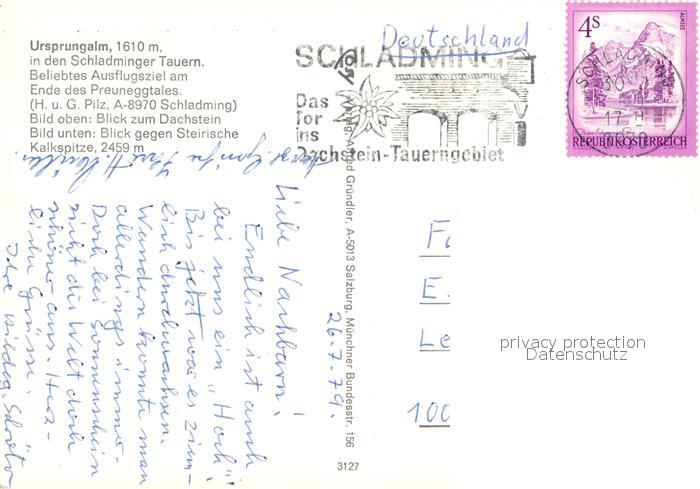 Ursprungalm, 1610 m,
in den Schladminger Tauern.
Beliebtes Ausflugsziel am
Ende des Preuneggtales.
(H. u. G. Pilz, A-8970 Schladming)
Bild oben: Blick zum Dachstein
Bild unten: Blick gegen Steirische
Kalkspitze, 2459 m
Deutschland
SCHLADMING
Das
Tor
ins
Dachstein-Tauerngebiet
4S
ALMSEE
SCHLADMING
30.
17-H
REPUBLIK ÖSTERREICH
Alfred Gründler, A-5013 Salzburg, Münchner Bundesstr. 156
26.7.79.
Liebe Nachbarn!
Endlich ist auch
bei uns ein "Hoch"!
Bis jetzt war es ziem-
lich durchwachsen.
Wandern konnte man
allerdings immer.
Doch bei Sonnenschein
sieht die Welt doch
schöner aus. Herz-
liche Grüsse
Ihre
E.
Le
100
privacy protection
Datenschutz
3127